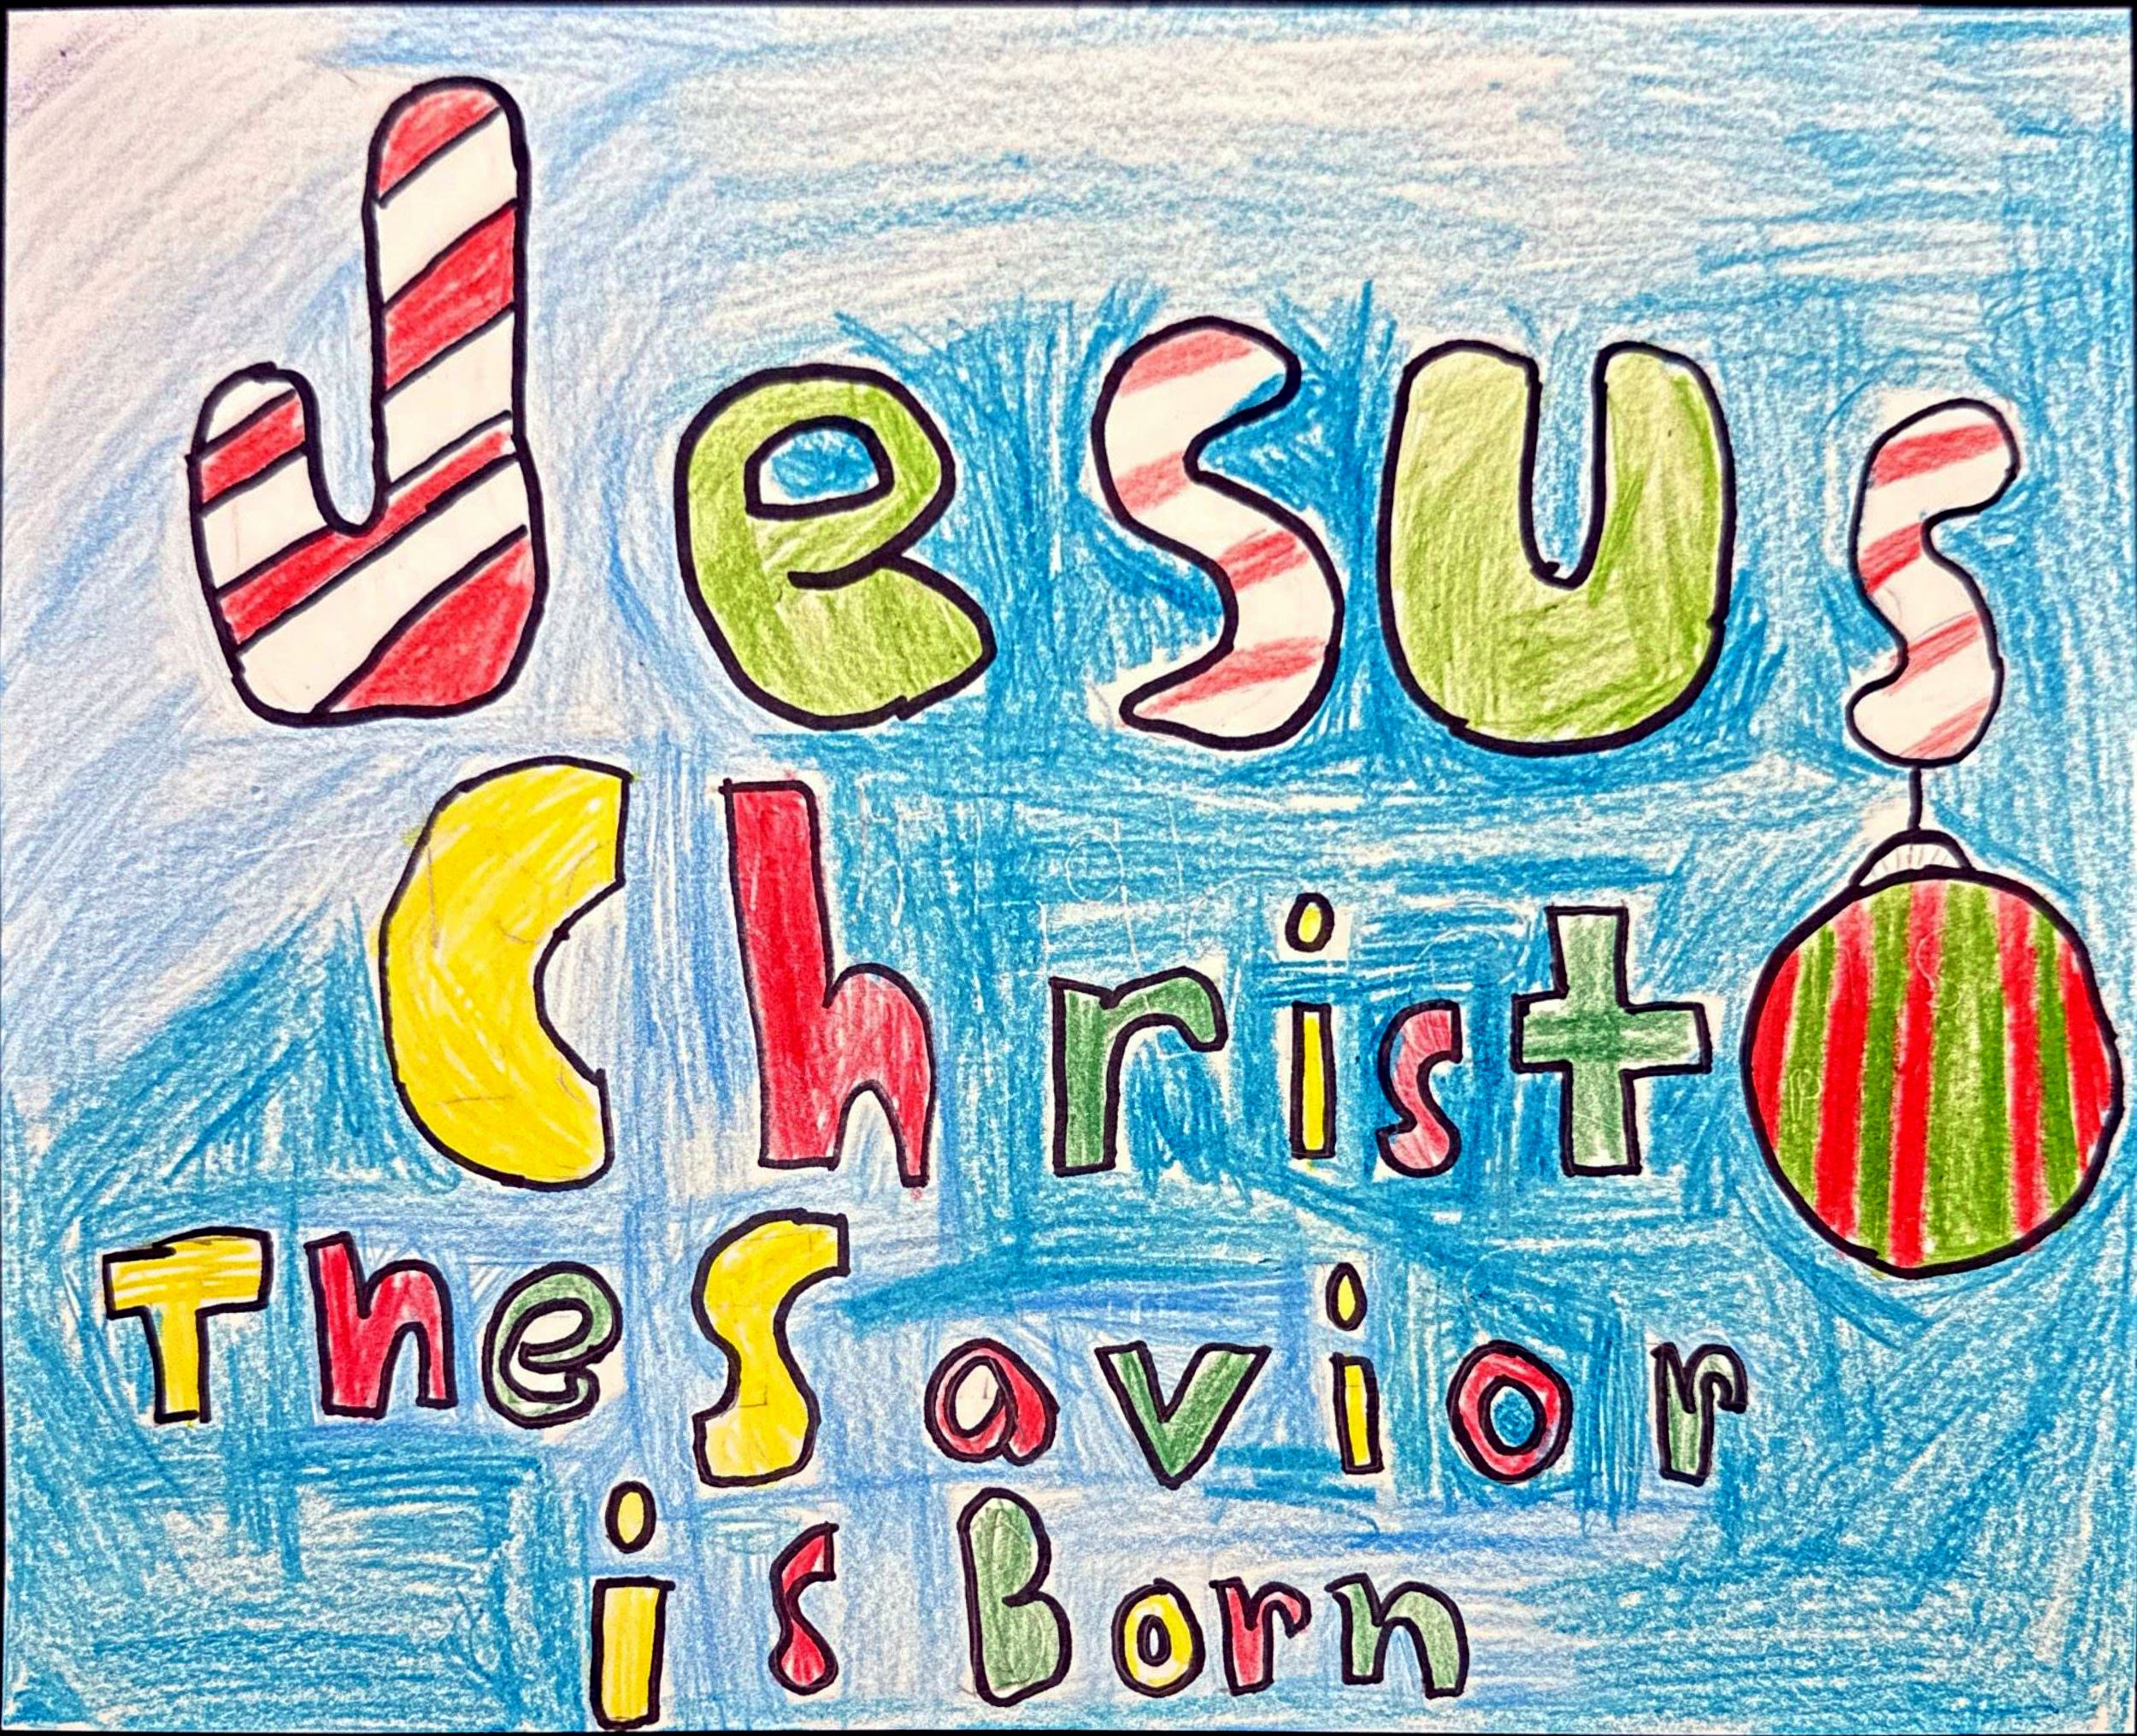 Jesus
Christ
The Savior
is Born